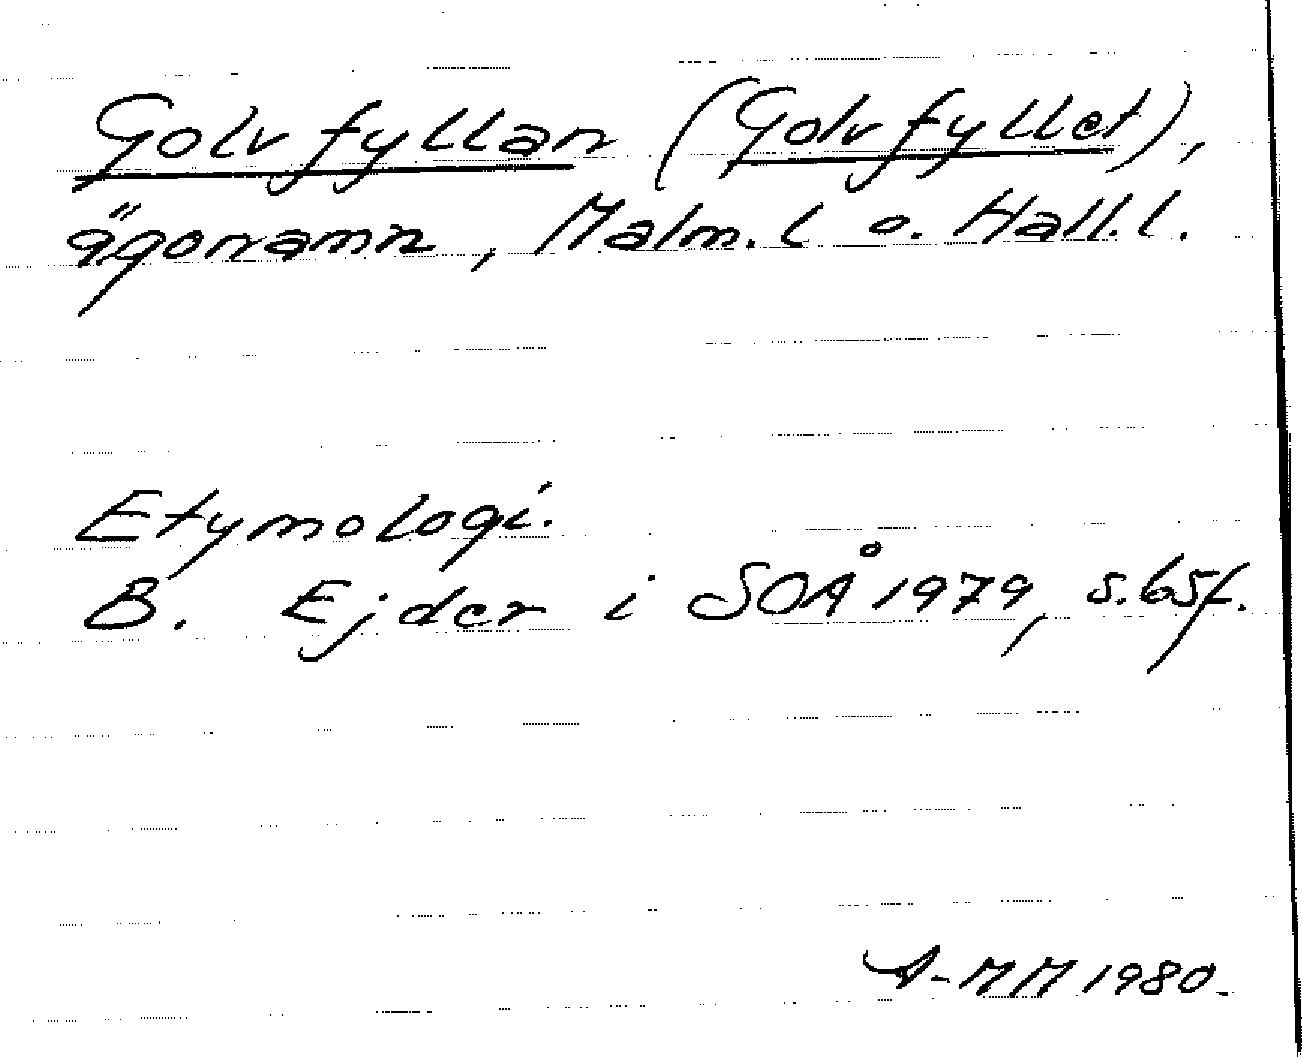 Golvfyllan (Golvfyllet),
ägonamn, Malm.l o. Hall.l.
Etymologi.
B. Ejder i SOÅ 1979, s.65f.
A-MM 1980.